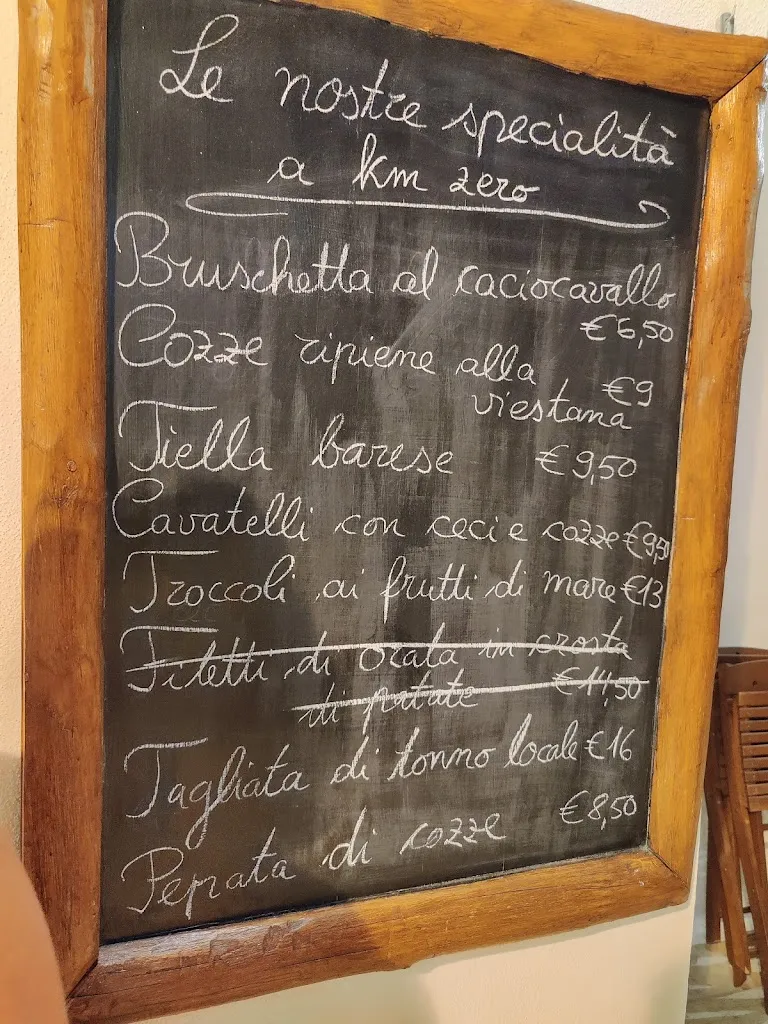 Le nostre specialità
a km zero
Bruschetta al caciocavallo
€6,50
Cozze ripiene alla
viestana €9
Tiella barese €9,50
Cavatelli con ceci e cozze €9,50
Troccoli ai frutti di mare €13
Filetti di orata in crosta
di patate €14,50
Tagliata di tonno locale €16
Pepata di cozze €8,50